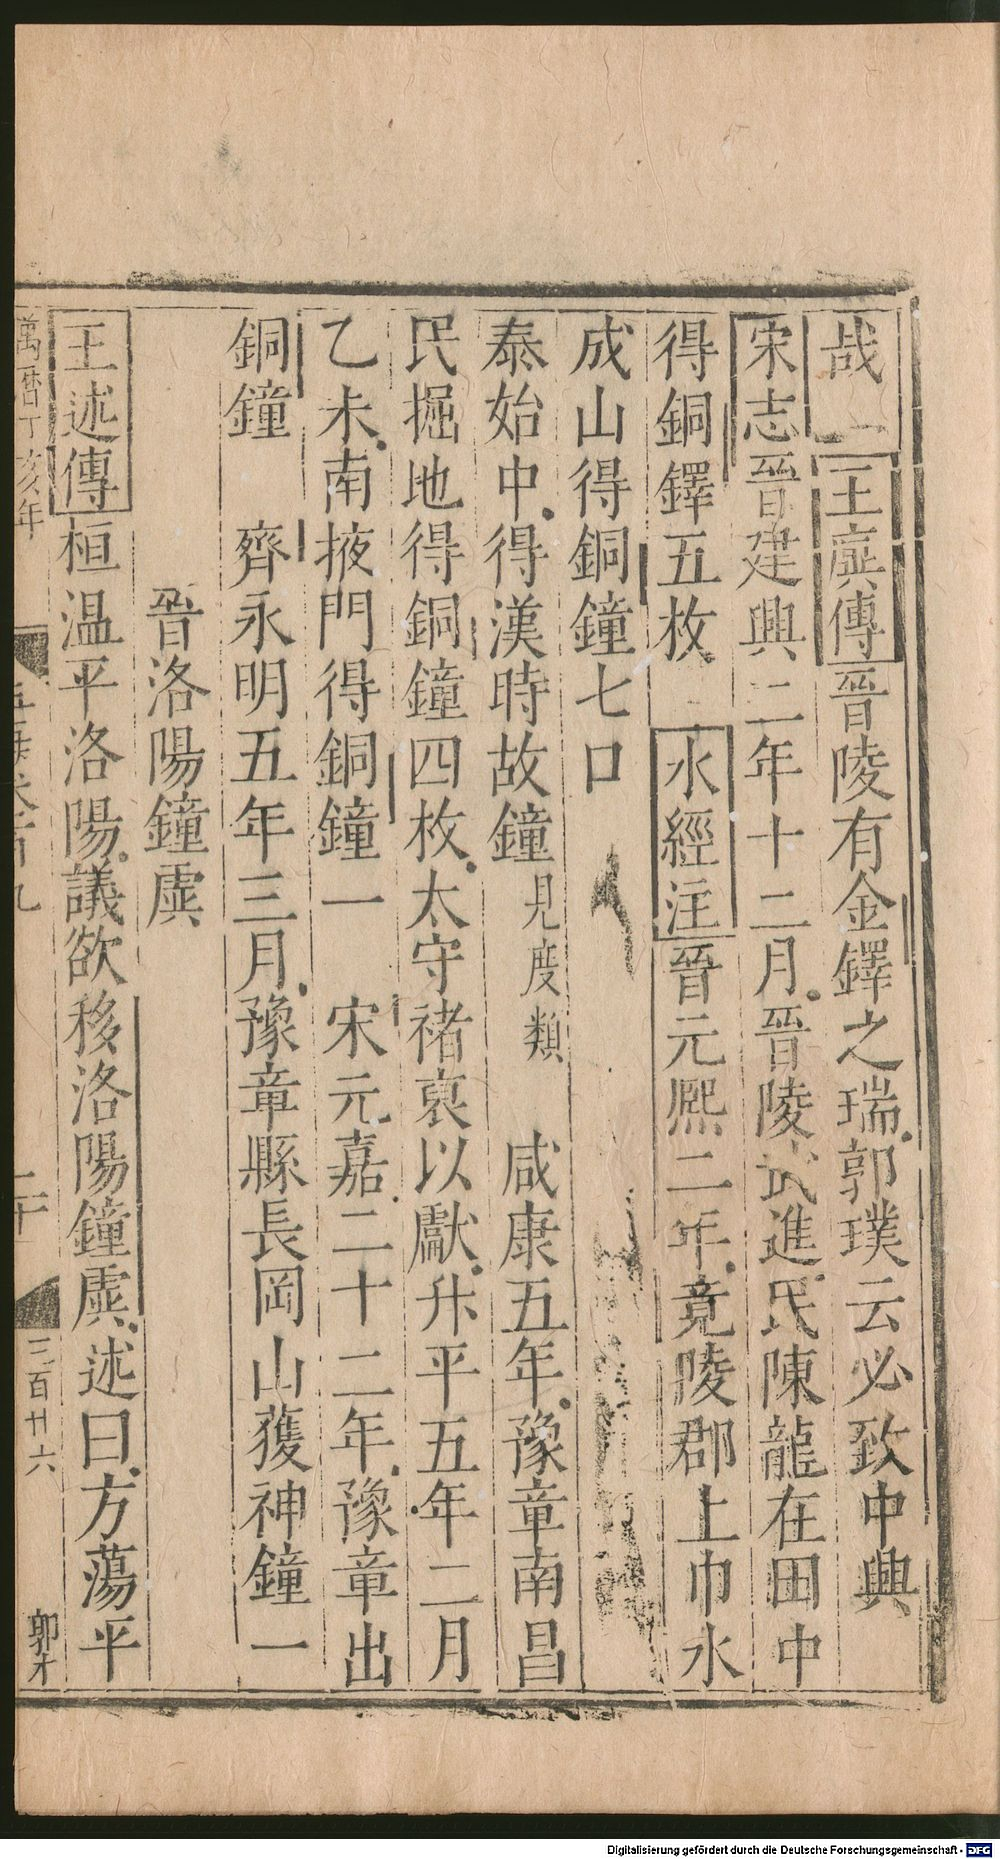 哉 王廙傳晉陵有金鐸之瑞郭璞云必致中興
宋志晉建興二年十二月晉陵武進民陳龍在田中
得銅鐸五枚 水經注晉元熙二年竟陵郡上巾水
成山得銅鐘七口
泰始中得漢時故鐘見度類 咸康五年豫章南昌
民掘地得銅鐘四枚太守褚裒以獻升平五年二月
乙未南掖門得銅鐘一 宋元嘉二十二年豫章出
銅鐘 齊永明五年三月豫章縣長岡山獲神鐘一
晉洛陽鐘虡
王述傳桓温平洛陽議欲移洛陽鐘虡述曰方蕩平
萬曆丁亥年
三百廿六
Digitalisierung gefördert durch die Deutsche Forschungsgemeinschaft - DFG